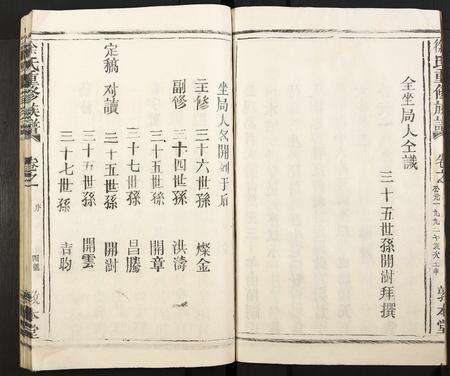 徐氏重修族譜
卷之一
公元一九九一年辛未
敦本堂
全坐局人仝議
三十五世孫開澍拜撰
坐局人名開列于后
主修 三十六世孫 燦金
副修 三十四世孫 洪濤
三十五世孫 開章
三十七世孫 昌勝
定稿 对讀 三十五世孫 開澍
三十五世孫 開雲
三十七世孫 吉昀
徐氏重修族譜
卷之一
敦本堂